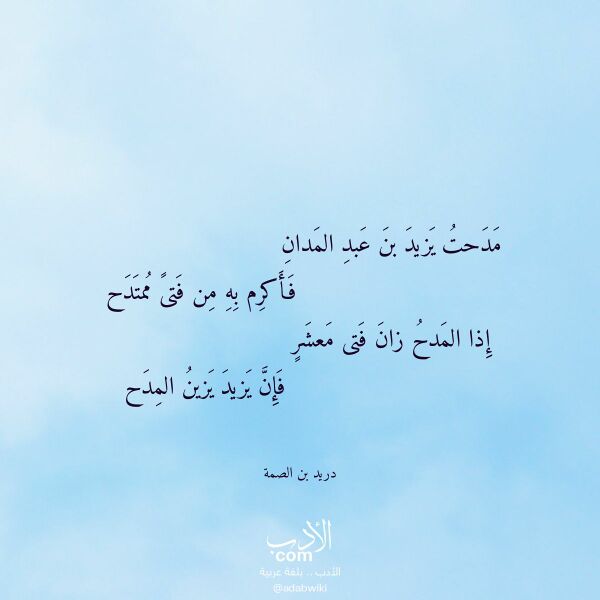 مَدَحتُ يَزيدَ بنَ عَبدِ المَدانِ
فَأَكرِم بِهِ مِن فَتىً مُمتَدَح
إِذا المَدحُ زانَ فَتى مَعشَرٍ
فَإِنَّ يَزيدَ يَزينُ المِدَح
دريد بن الصمة
الأدب
com
الأدب .. بلغة عربية
@adabwiki